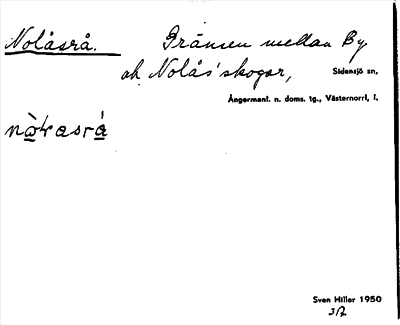 Nolåsrå. Gränsen mellan By
och Nolås' skogar, Sidensjö sn,
Ångermanl. n. doms. tg., Västernorrl. l.
Sven Hiller 1950